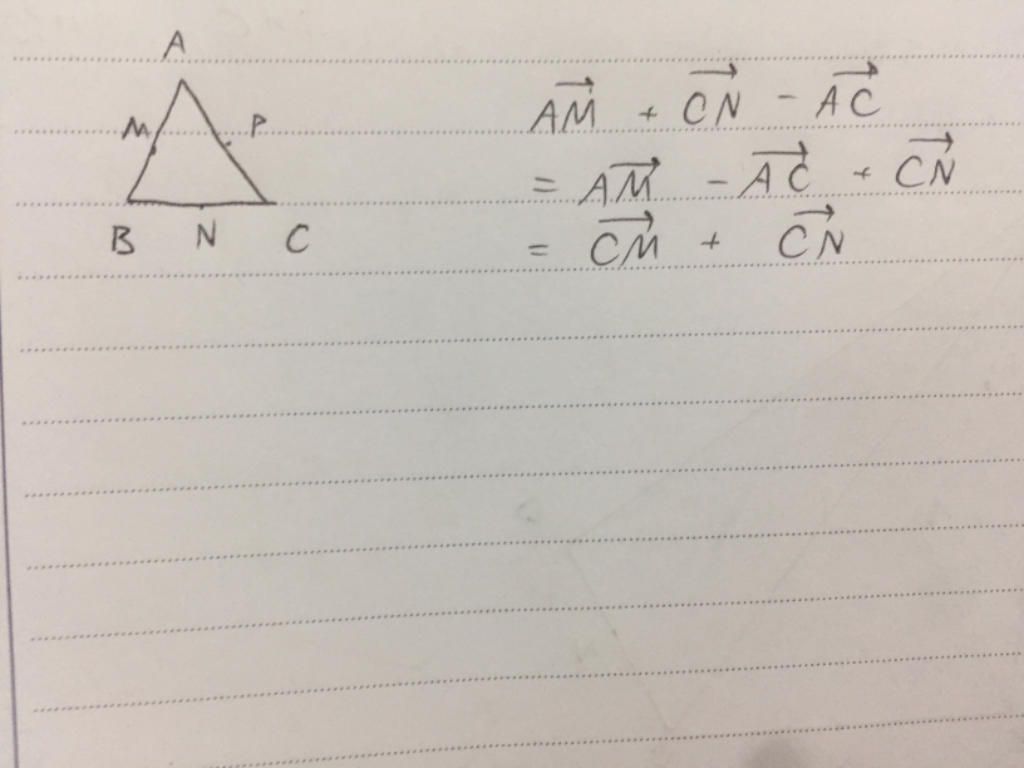 A
M P
B N C
$\overrightarrow{AM} + \overrightarrow{CN} - \overrightarrow{AC}$
$= \overrightarrow{AM} - \overrightarrow{AC} + \overrightarrow{CN}$
$= \overrightarrow{CM} + \overrightarrow{CN}$